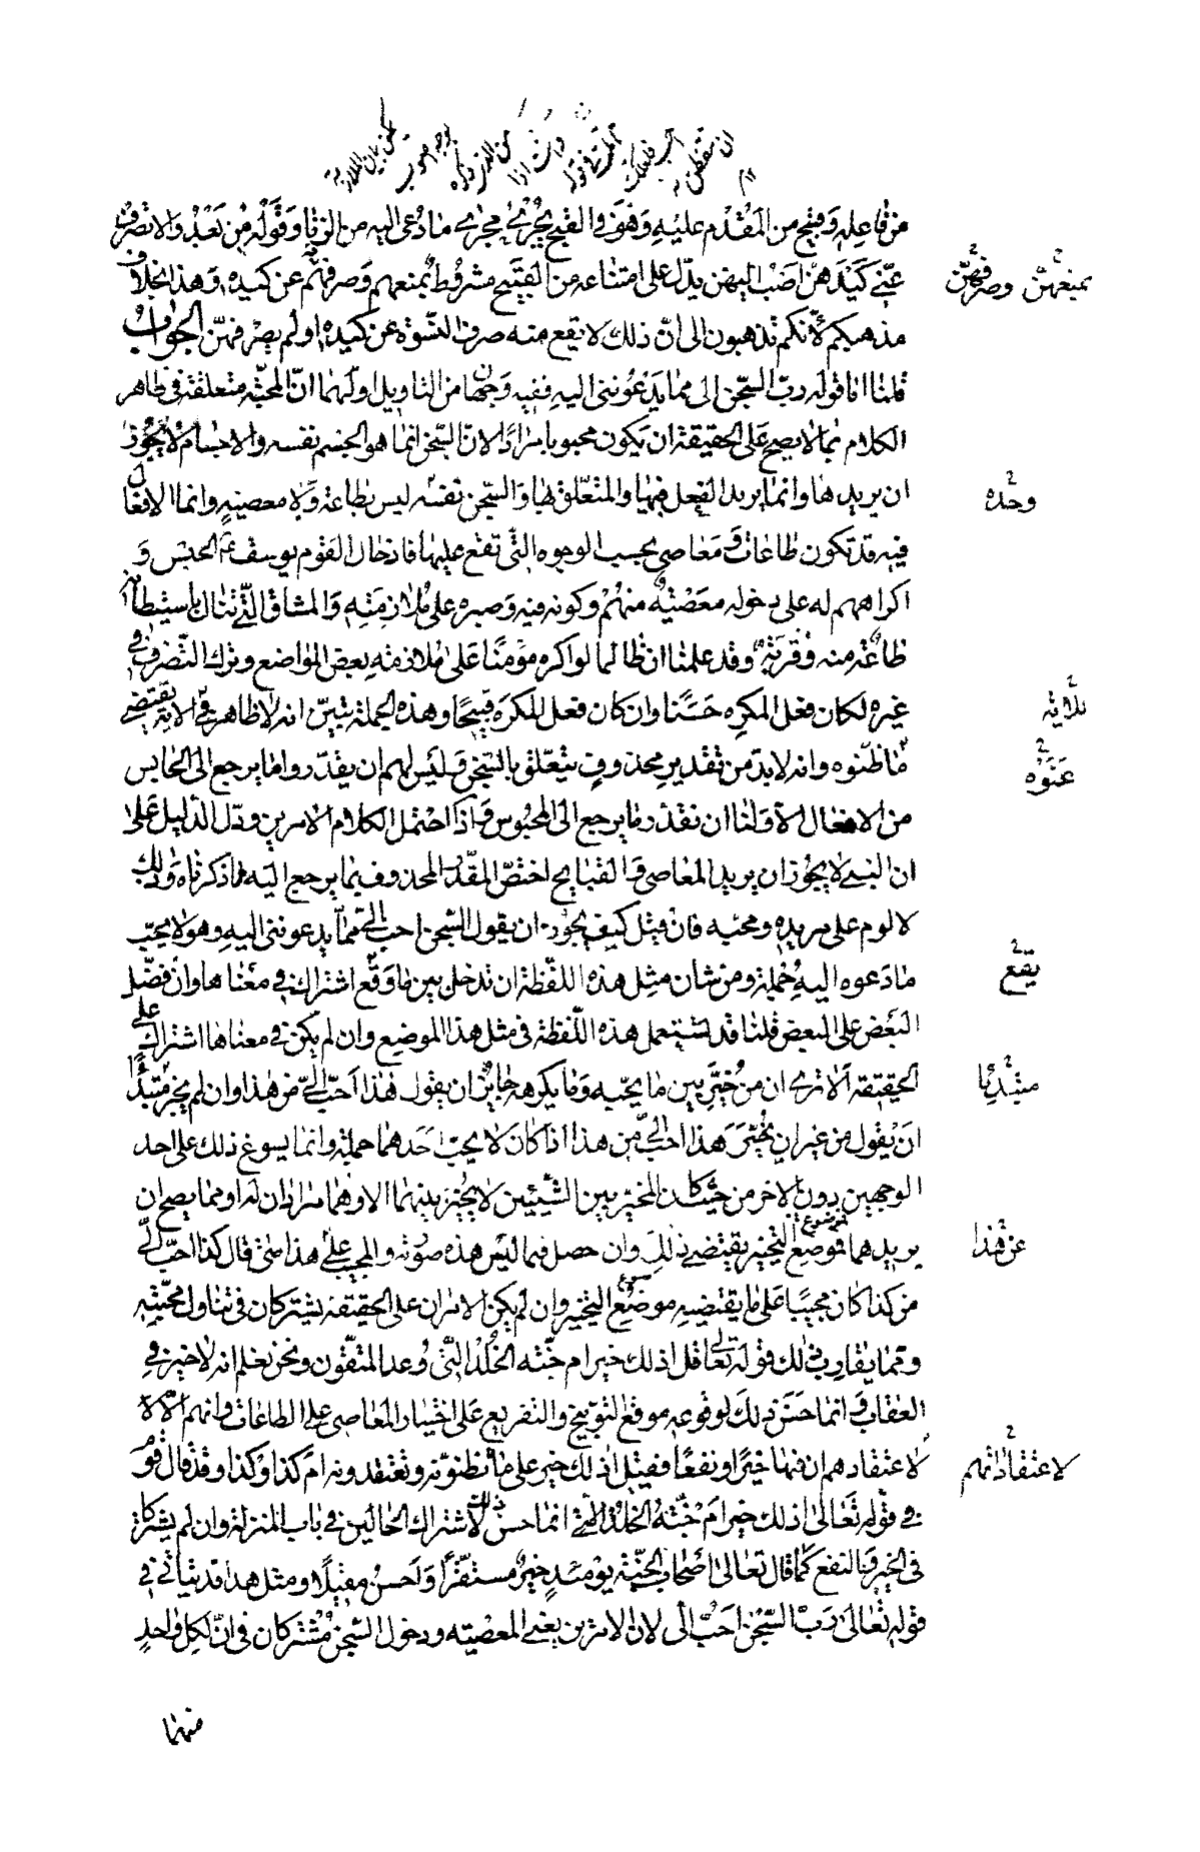 من فاعله وقبيح من المقدم عليه وهو في القبيح يجري مجرى ما دعى اليه من الزنا وقوله من بعد والا تصرف
عني كيدهن اصب اليهن يدل على امتناعه من القبيح مشروط بمنعهم وصرفهم عن كيده وهذا بخلاف
بمنعهن وصرفهن
مذهبكم لأنكم تذهبون الى ان ذلك لا يقع منه صرف النسوة عن كيده او لم يصرفهن الجواب
قلنا اما قوله رب السجن احب الى مما يدعونني اليه ففيه وجهان من التاويل اولهما ان المحبة متعلقة في ظاهر
الكلام بما لا يصح على الحقيقة ان يكون محبوبا مرادا لان السجن انما هو الجسم نفسه والاجسام لا يجوز
ان يريدها وانما يريد الفعل فيها والمتعلق بها والسجن نفسه ليس بطاعة ولا معصية وانما الافعال
وحده
فيه قد تكون طاعات ومعاصي بحسب الوجوه التي تقع عليها فادخال القوم يوسف عم الحبس و
اكراههم له على دخوله معصية منهم وكونه فيه وصبره على ملازمته والمشاق التي تنال باستيطانه
طاعة منه وقربة وقد علمنا ان ظالما لو اكره مؤمنا على ملازمة بعض المواضع وترك التصرف في
غيره لكان فعل المكره حسنا وان كان فعل المكره قبيحا وهذه الجملة تبين انه لا ظاهر في الاية يقتضي
للاية
ما ظنوه وانه لا بد من تقدير محذوف يتعلق بالسجن وليس لهم ان يقدروا ما يرجع الى الحابس
عنوه
من الافعال الا ولنا ان نقدر ما يرجع الى المحبوس واذا احتمل الكلام الامرين ودل الدليل على
ان النبي لا يجوز ان يريد المعاصي والقبايح اختص المقدر المحذوف بما يرجع اليه مما ذكرناه وذلك
لا لوم على مريده ومحبه فان قيل كيف يجوز ان يقول السجن احب الي مما يدعونني اليه وهو لا يحب
ما دعوه اليه جملة ومن شان مثل هذه اللفظة ان تدخل بين ما وقع اشتراك في معناها وان فضل
يقع
البعض على البعض قلنا قد تستعمل هذه اللفظة في مثل هذا الموضع وان لم يكن في معناها اشتراك على
الحقيقة الا ترى ان من خير بين ما يحبه وما يكرهه جايز ان يقول هذا احب الي من هذا وان لم يجز مبتدا
مبتديا
ان يقول من غير ان يخير هذا احب الي من هذا اذا كان لا يحب احدهما جملة وانما يسوغ ذلك على احد
الوجهين دون الاخر من حيث كان المخير بين الشيئين لا يخير بينهما الا وهما مرادان له او مما يصح ان
يريدهما فموضع التخيير يقتضي ذلك وان حصل فيما ليس هذه صورته والمجيب على هذا متى قال كذا احب الي
عن هذا
من كذا كان مجيبا على ما يقتضيه موضع التخيير وان لم يكن الامران على الحقيقة يشتركان في تناول محبته
ومما يقارب ذلك قوله تعالى قل اذلك خير ام جنة الخلد التي وعد المتقون ونحن نعلم انه لا خير في
العقاب وانما حسن ذلك لوقوعه موقع التوبيخ والتقريع على اختيار المعاصي على الطاعات وانهم الا
لاعتقادهم ان فيها خيرا ونفعا فقيل اذلك خير على ما تظنونه وتعتقدونه ام كذا وكذا وقد قال قوم
لاعتقاداتهم
في قوله تعالى اذلك خير ام جنة الخلد التي انما حسن ذلك لاشتراك الحالين في باب المنزلة وان لم يشتركا
في الخير والنفع كما قال تعالى اصحاب الجنة يومئذ خير مستقرا واحسن مقيلا ومثل هذا قد يتاتى في
قوله تعالى رب السجن احب الى لان الامرين يعني المعصية ودخول السجن مشتركان في ان لكل واحد
منهما